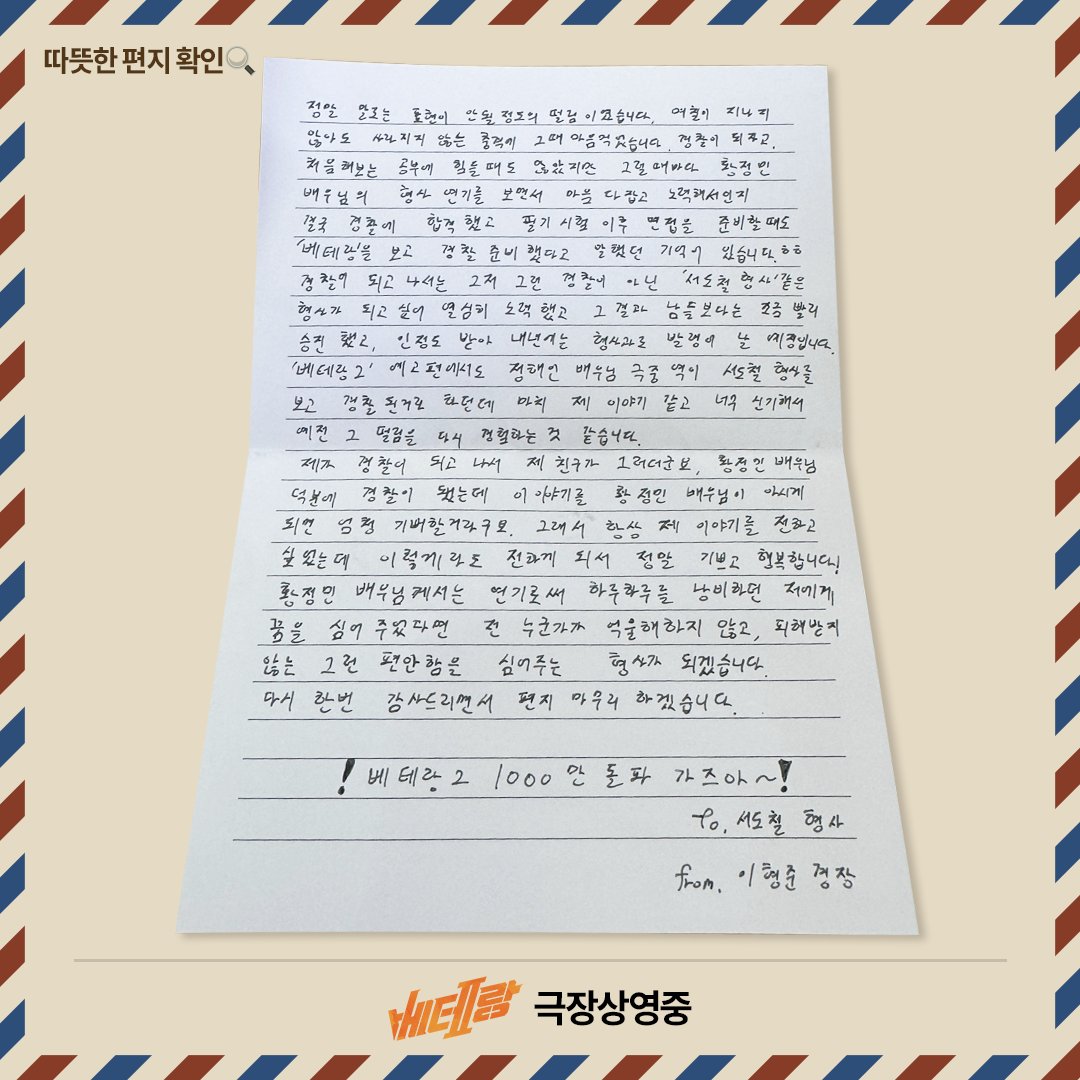 따뜻한 편지 확인
정말 말로는 표현이 안될 정도의 떨림이었습니다. 며칠이 지나지
않아도 사라지지 않는 충격에 그때 마음먹었습니다. 경찰이 되자고.
처음해보는 공부에 힘들때도 많았지만 그럴때마다 황정민
배우님의 형사 연기를 보면서 마음 다잡고 노력해서인지
결국 경찰에 합격했고 필기시험 이후 면접을 준비할때도
'베테랑'을 보고 경찰 준비했다고 말했던 기억이 있습니다.ㅎㅎ
경찰이 되고 나서는 그저 그런 경찰이 아닌 '서도철 형사'같은
형사가 되고 싶어 열심히 노력했고 그 결과 남들보다는 조금 빨리
승진 했고, 인정도 받아 내년에는 형사과로 발령이 날 예정입니다.
'베테랑2' 예고편에서도 정해인 배우님 극중 역이 서도철 형사를
보고 경찰 된거라 하던데 마치 제 이야기 같고 너무 신기해서
예전 그 떨림을 다시 경험하는 것 같습니다.
제가 경찰이 되고 나서 제 친구가 그러더군요, 황정민 배우님
덕분에 경찰이 됐는데 이 이야기를 황정민 배우님이 아시게
되면 엄청 기뻐할거라구요. 그래서 항상 제 이야기를 전하고
싶었는데 이렇게라도 전하게 되서 정말 기쁘고 행복합니다!
황정민 배우님께서는 연기로써 하루하루를 낭비하던 저에게
꿈을 심어 주었다면 전 누군가가 억울해하지 않고, 피해받지
않는 그런 편안함을 심어주는 형사가 되겠습니다.
다시 한번 감사드리면서 편지 마무리 하겠습니다.
! 베테랑2 1000만 돌파 가즈아~!
to. 서도철 형사
from. 이형준 경장
베테랑 극장상영중